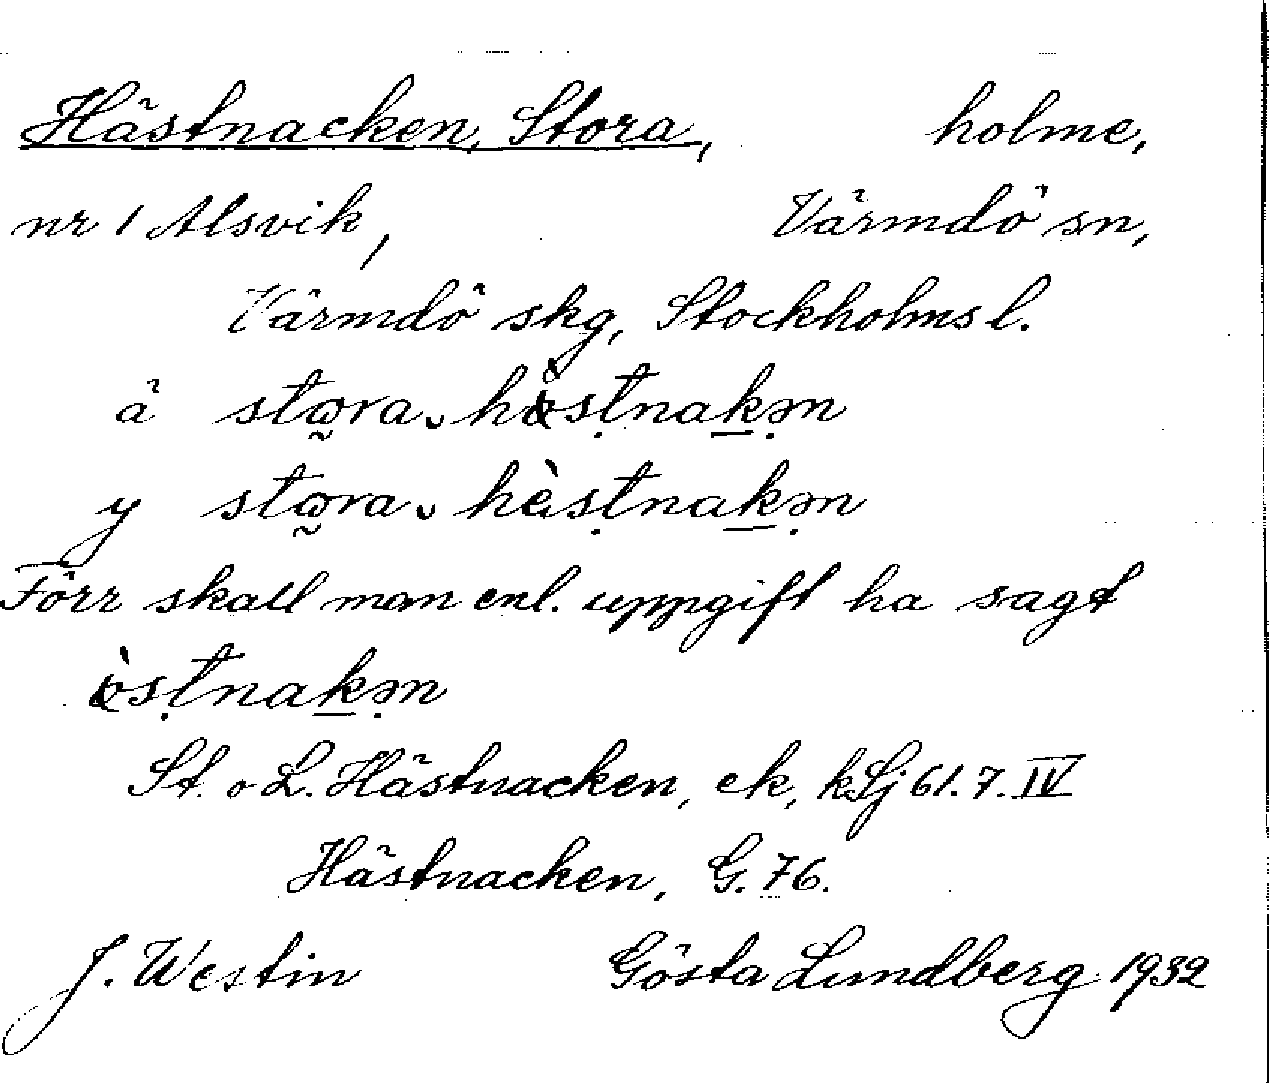 Hästnacken, Stora, holme,
nr 1 Alsvik, Värmdö sn,
Värmdö skg, Stockholms l.
ä
y
Förr skall man enl. uppgift ha sagt
St. o L. Hästnacken, ek, kLj 61.7. IV
Hästnacken, G. 76.
J. Westin Gösta Lundberg 1932